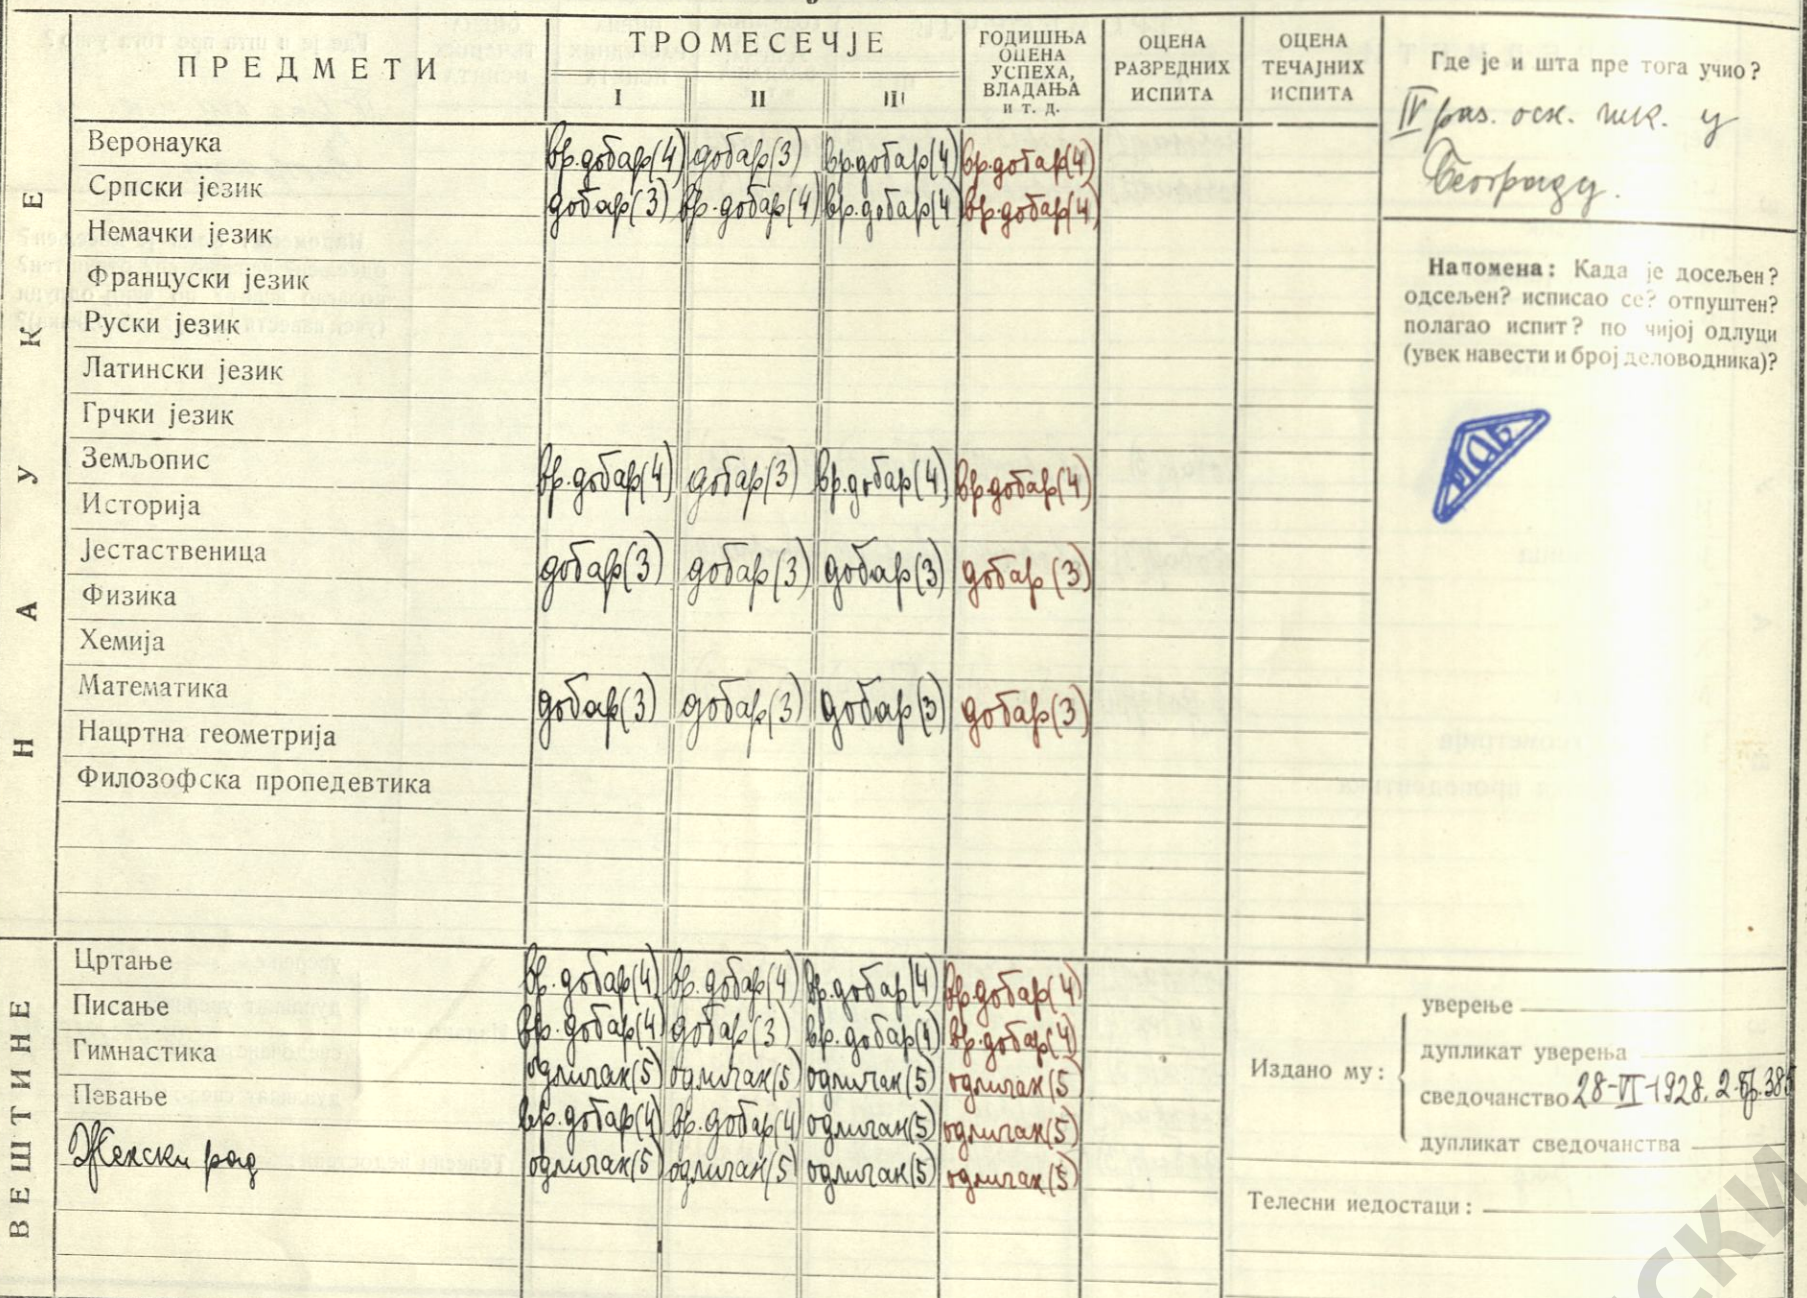 ПРЕДМЕТИ
ТРОМЕСЕЧЈЕ
I II III
ГОДИШЊА ОЦЕНА УСПЕХА, ВЛАДАЊА и т. д.
ОЦЕНА РАЗРЕДНИХ ИСПИТА
ОЦЕНА ТЕЧАЈНИХ ИСПИТА
НАУКЕ
Веронаука вр. добар (4) добар (3) вр. добар (4) вр. добар (4)
Српски језик добар (3) вр. добар (4) вр. добар (4) вр. добар (4)
Немачки језик
Француски језик
Руски језик
Латински језик
Грчки језик
Земљопис вр. добар (4) добар (3) вр. добар (4) вр. добар (4)
Историја
Јестаственица добар (3) добар (3) добар (3) добар (3)
Физика
Хемија
Математика добар (3) добар (3) добар (3) добар (3)
Нацртна геометрија
Филозофска пропедевтика
ВЕШТИНЕ
Цртање вр. добар (4) вр. добар (4) вр. добар (4) вр. добар (4)
Писање вр. добар (4) добар (3) вр. добар (4) вр. добар (4)
Гимнастика одличан (5) одличан (5) одличан (5) одличан (5)
Певање вр. добар (4) вр. добар (4) одличан (5) одличан (5)
Женски рад одличан (5) одличан (5) одличан (5) одличан (5)
Где је и шта пре тога учио?
IV раз. осн. шк. у
Београду.
Напомена: Када је досељен?
одсељен? исписао се? отпуштен?
полагао испит? по чијој одлуци
(увек навести и број деловодника)?
Издано му:
уверење
дупликат уверења
сведочанство 28-VI-1928.
дупликат сведочанства
Телесни недостаци: